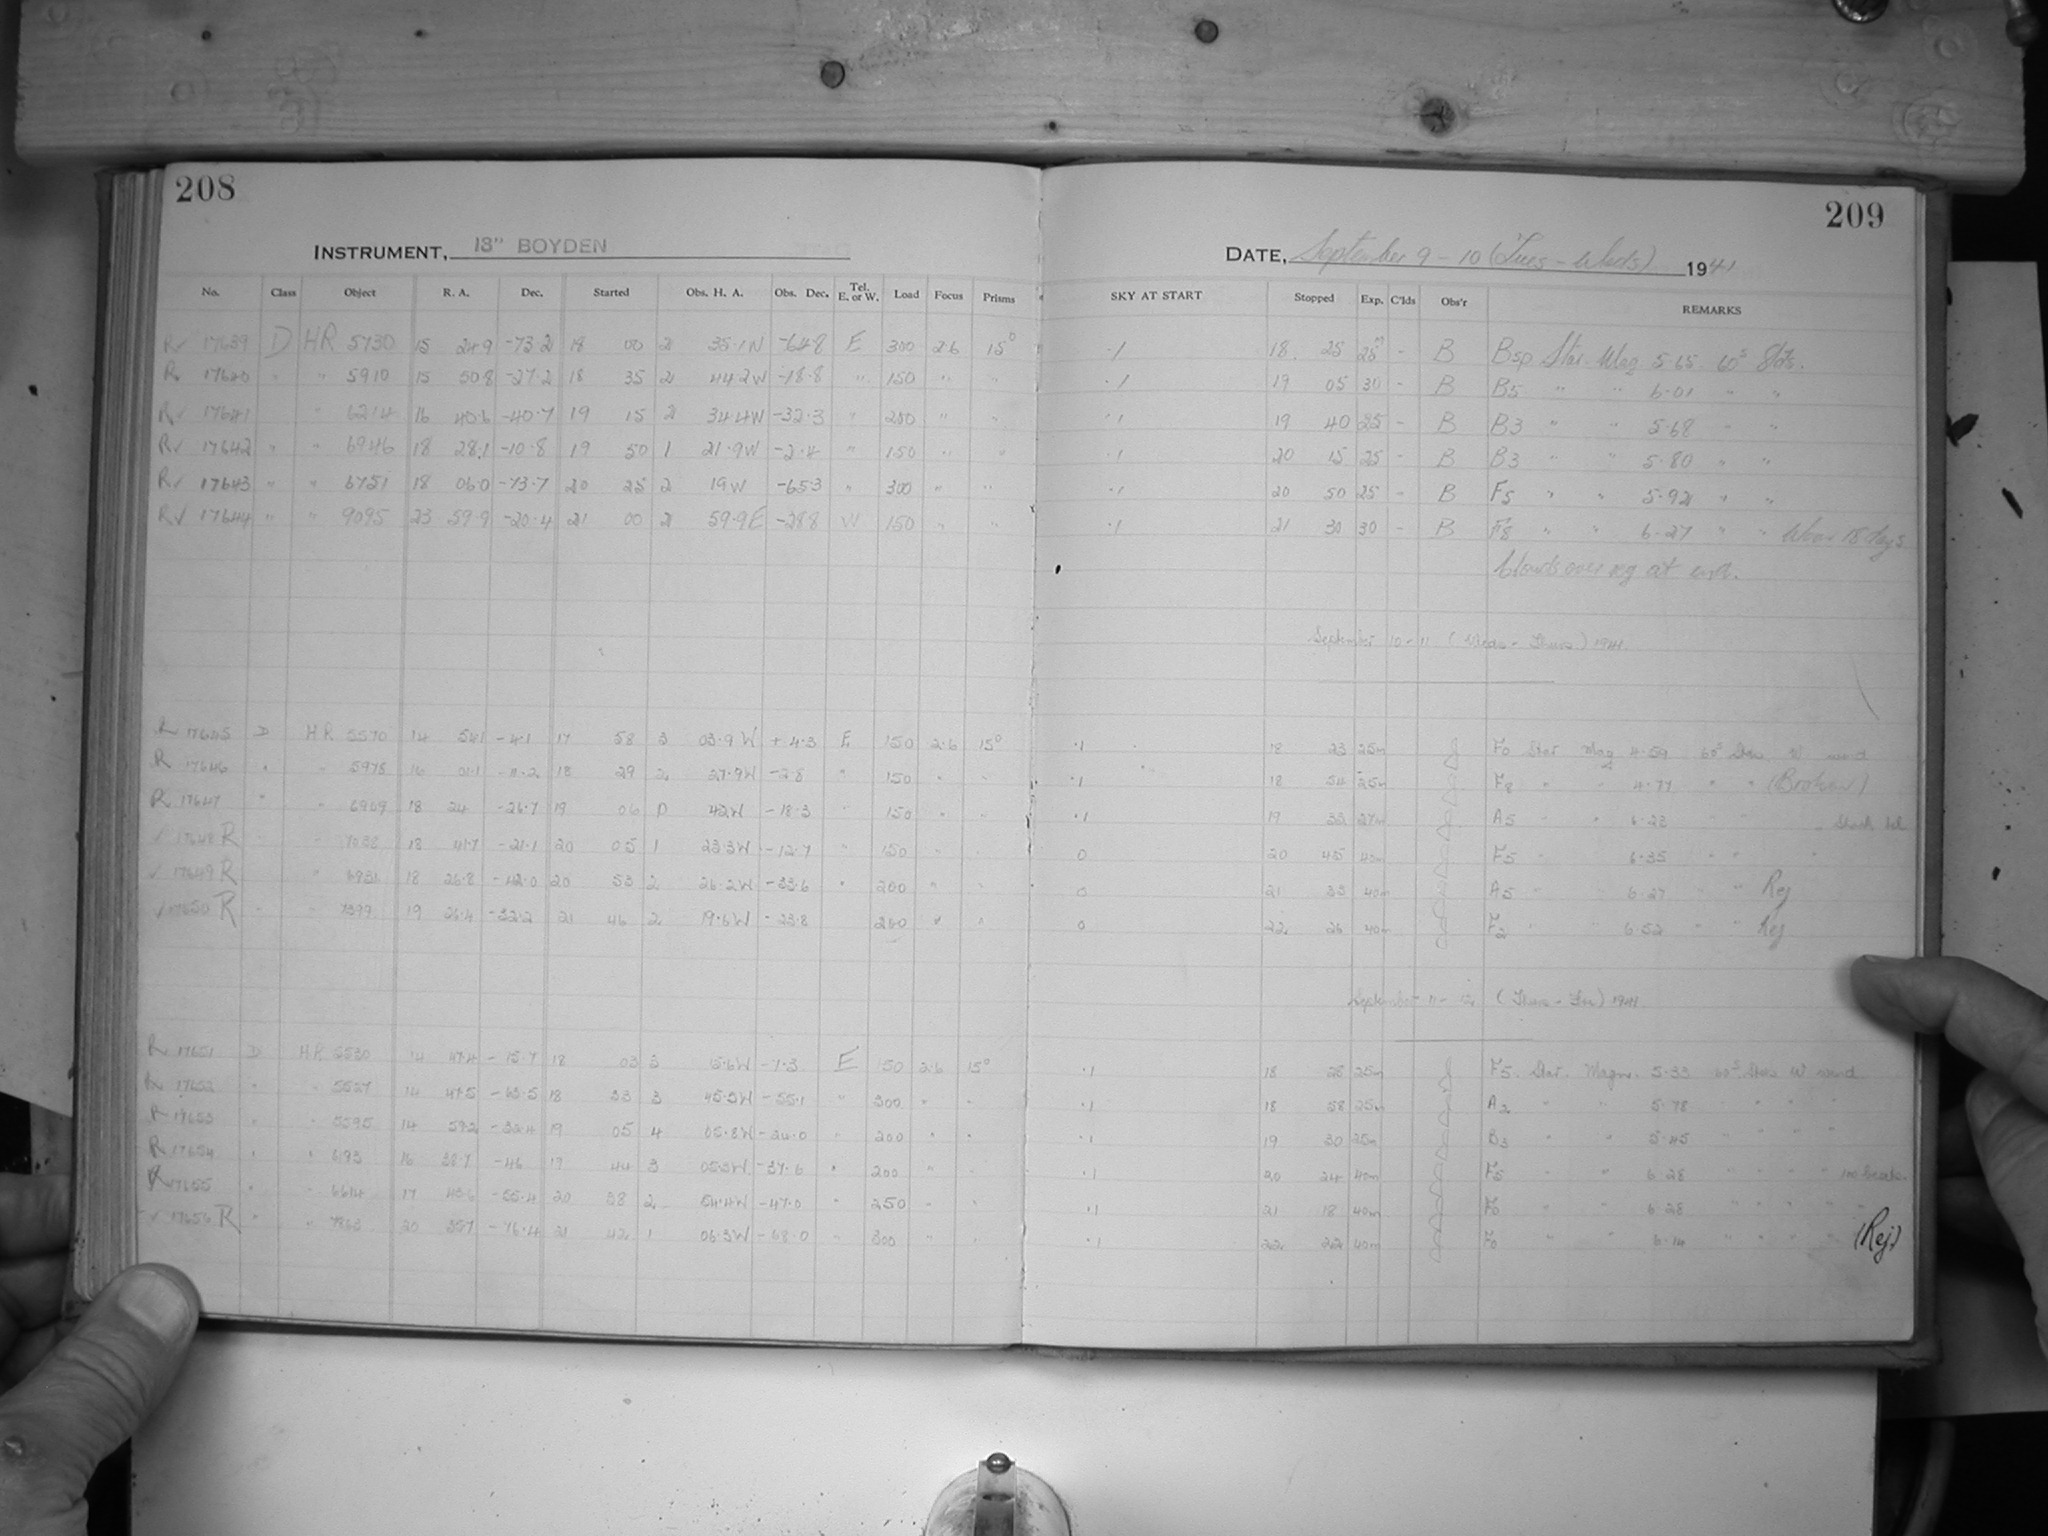 208
INSTRUMENT, 13" BOYDEN
No. Class Object R. A. Dec. Started Obs. H. A. Obs. Dec. Tel. E. or W. Load Focus Prisms
17639 D HR 5730 15 24.9 -73.2 18 00 2 35.1W -64.8 E 300 2.6 15°
17640 " " 5910 15 50.8 -27.2 18 35 2 44.2W -18.8 " 150 " "
17641 " 6214 16 40.6 -40.7 19 15 2 34.4W -32.3 " 200 " "
17642 " " 6946 18 28.1 -10.8 19 50 1 21.9W -2.4 " 150 " "
17643 " " 6751 18 06.0 -73.7 20 25 2 19W -65.3 " 300 " "
17644 " " 9095 23 59.9 -20.4 21 00 2 59.9E -28.8 W 150 " "
R 17645 D HR 5570 14 54.1 -4.1 17 58 3 03.9W +4.3 E 150 2.6 15°
R 17646 " " 5978 16 01.1 -11.2 18 29 2 27.9W -2.8 " 150 " "
R 17647 " " 6909 18 24 -26.7 19 06 42W -18.3 " 150 " "
17648 R " " 7038 18 41.7 -21.1 20 05 1 23.3W -12.7 " 150 "
17649 R " 6931 18 26.8 -42.0 20 53 2 26.2W -33.6 " 200 " "
17650 R " " 7399 19 26.4 -32.2 21 46 2 19.6W -23.8 200 " "
R 17651 D HR 5530 14 47.4 -15.7 18 03 3 15.6W -7.3 E 150 2.6 15°
R 17652 " " 5527 14 47.5 -63.5 18 33 3 45.3W -55.1 " 300 " "
R 17653 5595 14 59.2 -32.4 19 05 4 05.8W -24.0 200 " "
R 17654 " " 6193 16 38.7 -46 19 44 3 05.3W -37.6 " 200 "
R 17655 " 6614 17 43.6 -55.4 20 38 2 54.4W -47.0 " 250 "
17656 R " " 20 35.7 -76.4 21 42 1 06.3W -68.0 " 300 "
209
DATE, September 9 - 10 (Tues - Weds) 1941
SKY AT START Stopped Exp. C'lds Obs'r REMARKS
.1 18 25 25m - B B5p Star Mag 5.65 60s Slots.
.1 19 05 30 - B B5 " " 6.01 " "
.1 19 40 25 - B B3 " " 5.68 " "
.1 20 15 25 - B B3 " " 5.80 " "
.1 20 50 25 - B F5 " " 5.92 " "
.1 21 30 30 - B F8 " " 6.27 " " Moon 18 days
September 10 - 11 (Weds - Thurs.) 1941.
.1 18 23 25m F0 Star Mag 4.59 60s W wind
.1 18 54 25m F8 " " 4.77 " " (Broken)
.1 19 33 27m A5 " " 6.23
0 20 45 40m F5 " 6.35 " "
0 21 33 40m A5 " 6.27 " " Rej
0 22 26 40m F2 " 6.52 " " Rej
September 11 - 12 (Thurs - Fri) 1941
.1 18 28 25m F5. Star. Magn. 5.33 60s W wind.
.1 18 58 25m A2 " " 5.78 " " "
.1 19 30 25m B3 " " 5.45 " " "
.1 20 24 40m F5 " 6.28 " " " "
.1 21 18 40m F0 " " 6.28 " " " "
.1 22 22 40m F0 " " 6.14 " " " (Rej)